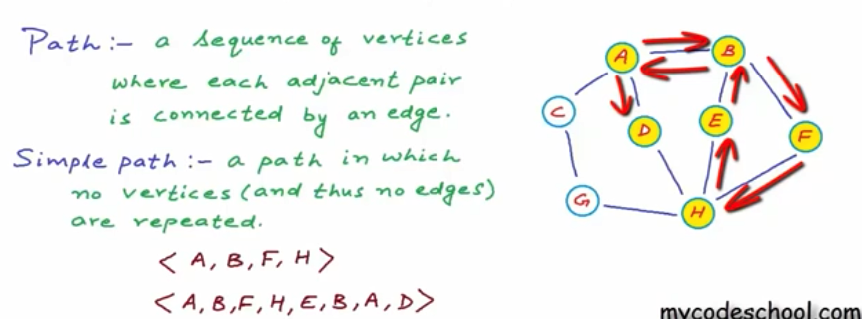 Path:- a sequence of vertices
where each adjacent pair
is connected by an edge.
Simple path:- a path in which
no vertices (and thus no edges)
are repeated.
< A, B, F, H >
< A, B, F, H, E, B, A, D >
A
B
C
D
E
F
G
H
mycodeschool.com